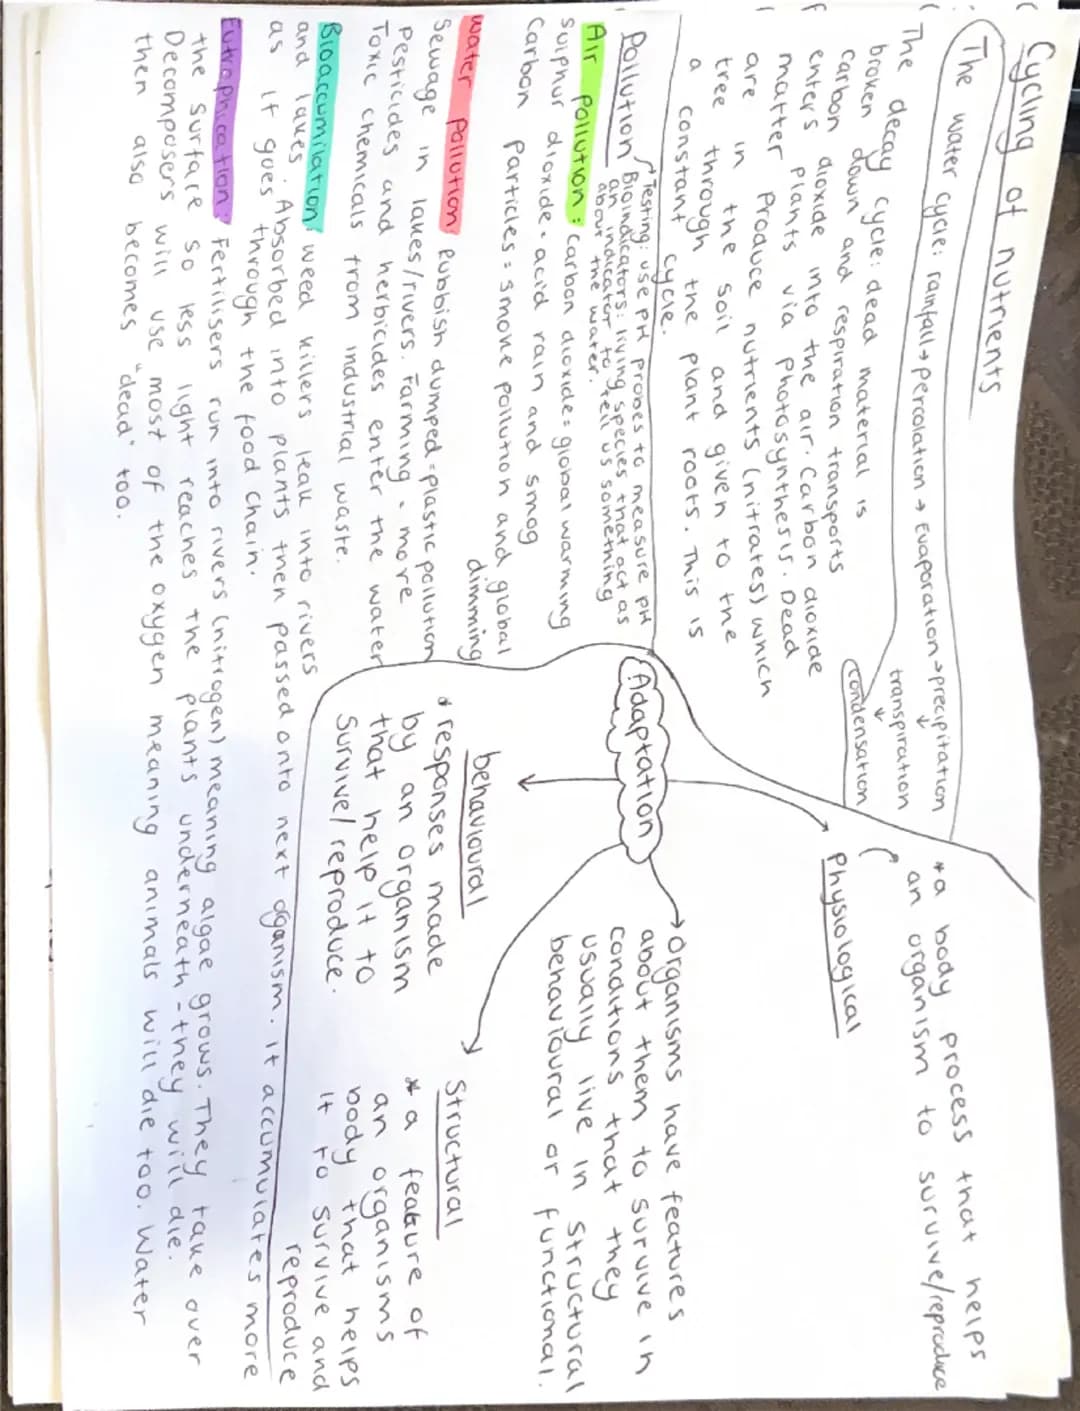 Cycling of nutrients
The water cycle: rainfall → percolation → Evaporation → precipitation
transpiration
condensation
The decay cycle: dead material is
broken down and respiration transports
carbon dioxide into the air. Carbon dioxide
enters plants via photosynthesis. Dead
matter produce nutrients (nitrates) which
are in the soil and given to the
tree through the plant roots. This is
a constant cycle.
Pollution
Testing: use pH probes to measure pH
Bioindicators: living species that act as
an indicator to tell us something
about the water.
Air pollution: Carbon dioxide = global warming
Sulphur dioxide = acid rain and smog
Carbon particles = smoke pollution and global
dimming
Water pollution: Rubbish dumped = plastic pollution
Sewage in lakes/rivers. Farming = more
pesticides and herbicides enter the water
Toxic chemicals from industrial waste.
Bioaccumilation: weed killers leak into rivers
and lakes. Absorbed into plants then passed onto next oganism. It accumulates more
as it goes through the food chain.
Eutrophication: Fertilisers run into rivers (nitrogen) meaning algae grows. They take over
the surface so less light reaches the plants underneath - they will die.
Decomposers will use most of the oxygen meaning animals will die too. Water
then also becomes "dead" too.
Adaptation
→ organisms have features
about them to survive in
conditions that they
usually live in structural
behavioural or functional.
Physiological
* a body process that helps
an organism to survive/reproduce
behavioural
* responses made
by an organism
that help it to
survive/reproduce.
Structural
* a feature of
an organisms
body that helps
it to survive and
reproduce